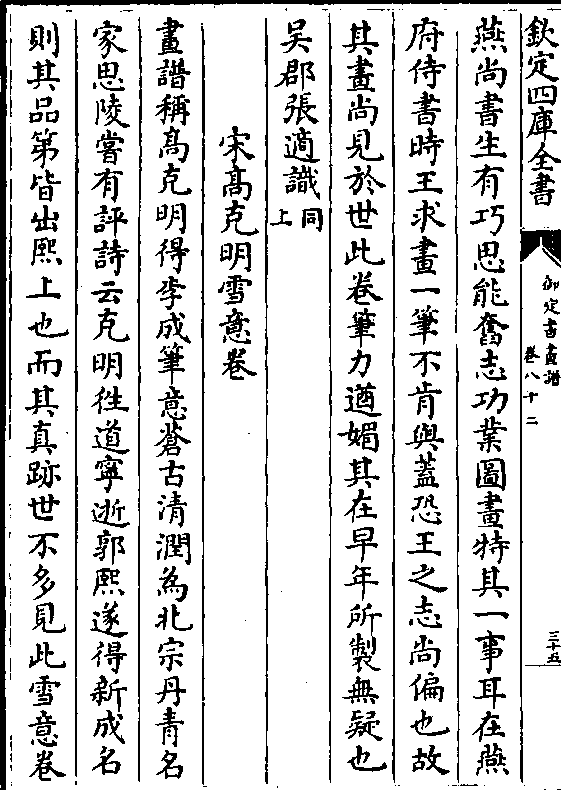 欽定四庫全書
御定書畫譜
卷八十二
三十五
燕尚書生有巧思能奮志功業圖畫特其一事耳在燕
府侍書時王求畫一筆不肯與蓋恐王之志尚偏也故
其畫尚見於世此卷筆力遒媚其在早年所製無疑也
吴郡張適識同上
宋髙克明雪意卷
畫譜稱髙克明得李成筆意蒼古清潤為北宗丹青名
家思陵嘗有評詩云克明徃道寧逝郭熙遂得新成名
則其品第皆出熙上也而其真跡世不多見此雪意卷